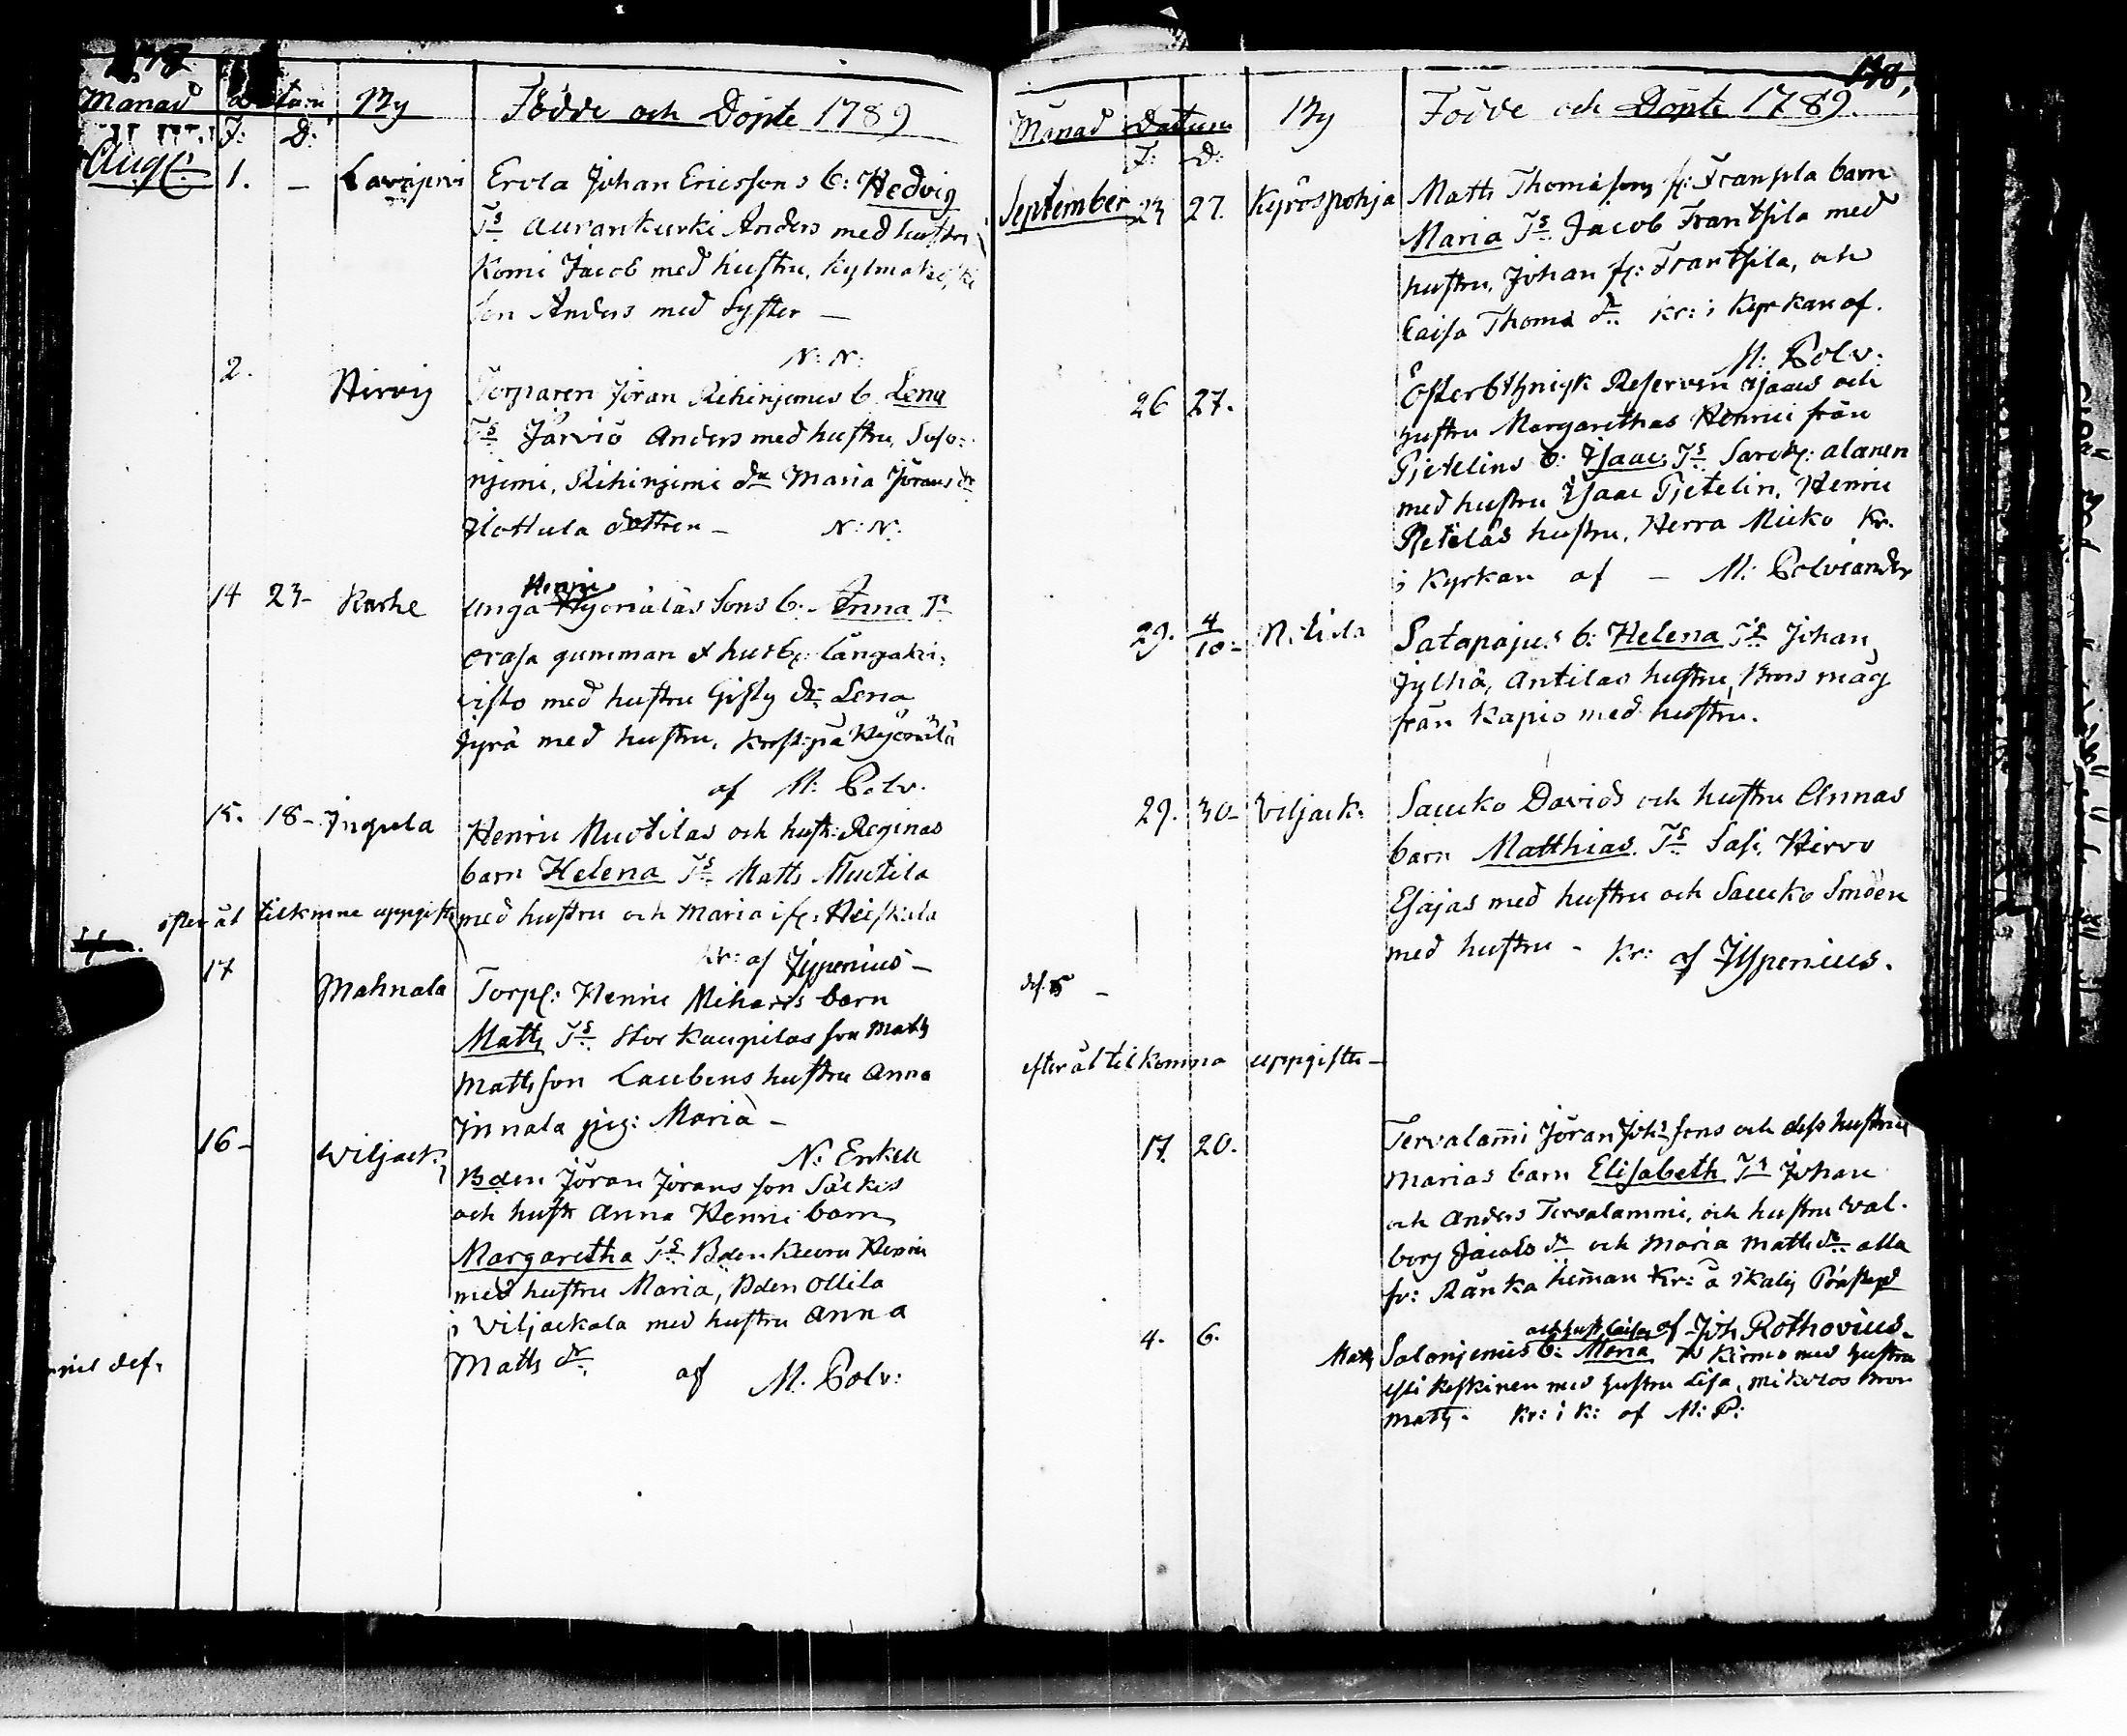 Månad Datum By Födde och Döpte 1789
F: D:
Aug: 1. – Lavajervi Erola Johan Ericssons b: Hedvig
Ts Aurankurki Anders med hustru
Komi Jacob med hustru, Kylmakoski
Son Anders med Syster –
N: N:
2. Hirvij Torparen Jöran Rihinjemis b. Lena
Ts Järviö Anders med hustru, Solo-
njemi, Rihinjemi dr Maria Jörans dr
Flottula dottren – N: N:
14 23– Karhe Unga Henric Hyömäläs Sons b. Anna Ts
orasa gumman
visto med hustru Gifty dr Lena
Jyrä med hustru, Krist: på Hyömälä
af M: Polv.
15. 18– Jngula Henric Muotilas och hustr: Reginas
barn Helena Ts Matts Muotila
efter åt tilkomne uppgifter med hustru och Maria ifr: Heiskala
kr: af Jsspenius –
17 Mahnala Torp: Henric Miharis barn
Matts Ts Stor Kaupilas son Matts
Mattsson Laubens hustru Anna
Jnnala pig: Maria –
N: Enkell
16– Wiljack: Bden Jöran Jörans son Säckis
och hustr Anna Henric barn
Margaretha Ts Bden Kuoru Henric
med hustru Maria, Bden Ollila
i Viljackala med hustru Anna
Matts dr af M. Polv:
def.
178,
Månad Datum By Födde och Döpte 1789.
F: D:
September 23 27. Kyröspohja Matts Thomæ sons fr: Frantsila barn
Maria Ts Jacob Frantsila med
hustru, Johan fr: Frantsila, och
Caisa Thomæ dr kr: i Kyrkan af.
M: Polv:
26 27. Österbthnisk Reserven Jsaacs och
hustru Margarethas Henric från
Pjetelins b: Jsaac, Ts alanen
med hustru Jsaac Pjetelin, Henric
Pietiläs hustru, Herra Micko Kr.
i Kyrkan af – M: Polviander
29. 4/10– Satapajus b: Helena Ts Johan
Jylhä, Antilas hustru, Brors måg
från Kapis med hustru.
29. 30– Viljack: Sauko Davids och hustru Annas
barn Matthias. Ts Sasi, Hirvo
Esajas med hustru och Sauko Smöen
med hustru – kr: af Jsspenius.
def. –
efter åt tilkomna uppgifter –
17. 20. Tervalam̄i Jöran Johs sons och dess hustru
Marias barn Elisabeth Ts Johan
och Anders Tervalammi, och hustru Val-
borg Jacobs dr och Maria Matts dr alla
fr: Ränka hem̄an Kr: å Ikalis Prästgd
och hust Caisa af Joh Rothovius.
4. 6. Matts Salonjemis b: Maria Ts Kirmo med hustru
Keskinen med hustru Lisa, Mikolos Bror
Matts. Kr: i K: af M: P: